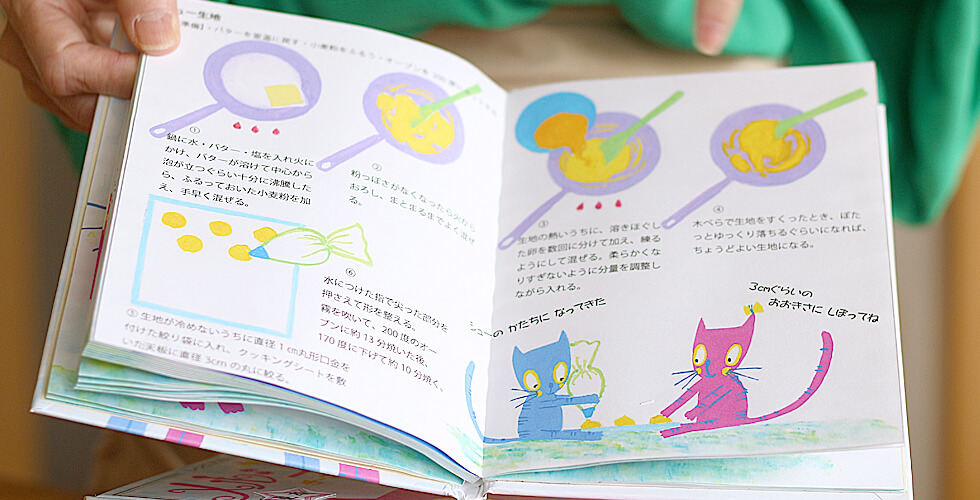 ュー生地
準備]・バターを室温に戻す・小麦粉をふるう・オーブンを
①
鍋に水・バター・塩を入れ火に
かけ、バターが溶けて中心から
泡が立つぐらい十分に沸騰した
ら、ふるっておいた小麦粉を加
え、手早く混ぜる。
②
粉っぽさがなくなったら火から
おろし、まとまるまでよく混ぜ
る。
⑤ 生地が冷めないうちに直径1cm丸形口金を
付けた絞り袋に入れ、クッキングシートを敷
いた天板に直径3cmの丸に絞る。
⑥
水につけた指で尖った部分を
押さえて形を整える。
霧を吹いて、200度のオー
ブンに約13分焼いた後、
170度に下げて約10分焼く。
③
生地の熱いうちに、溶きほぐし
た卵を数回に分けて加え、練る
ようにして混ぜる。柔らかくな
りすぎないように分量を調整し
ながら入れる。
④
木べらで生地をすくったとき、ぼた
っとゆっくり落ちるぐらいになれば、
ちょうどよい生地になる。
シューの かたちに なってきた
3cmぐらいの
おおきさに しぼってね